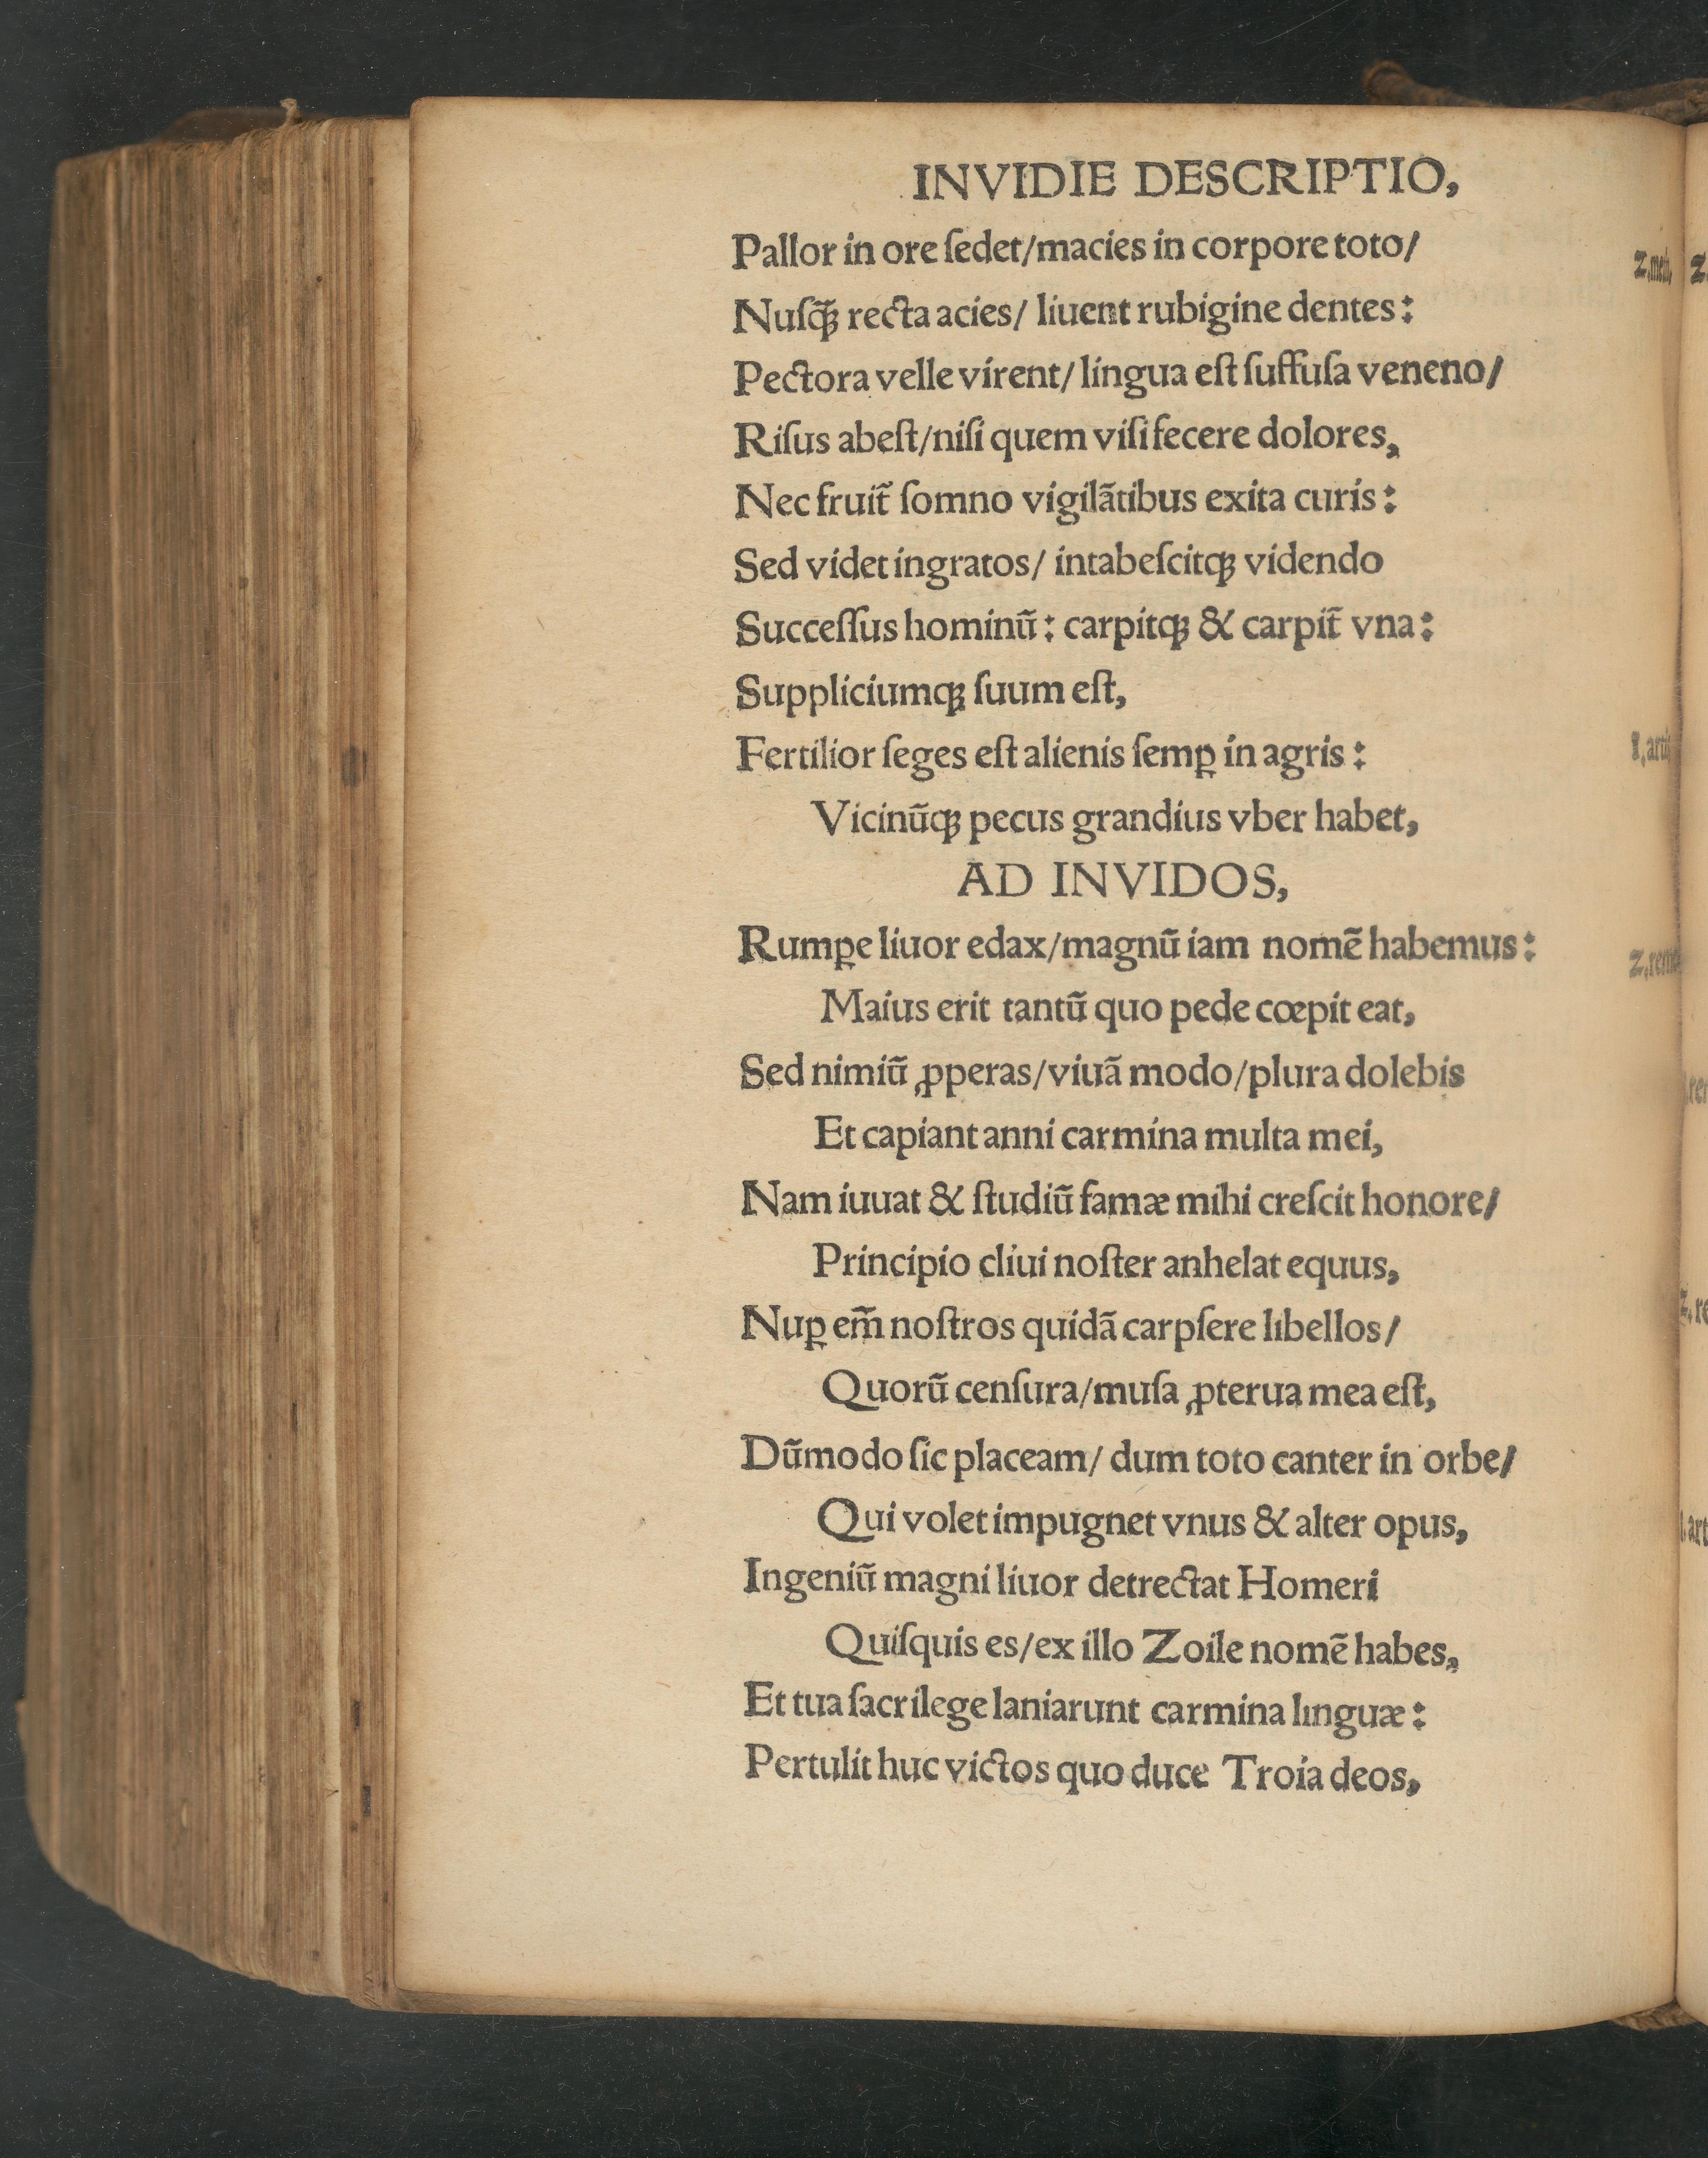 INVIDIE DESCRIPTIO,
Pallor in ore ſedet/macies in corpore toto/
2,meth,
Nuſq̃ꝫ recta acies/ liuent rubigine dentes:
Pectora velle virent/ lingua eſt ſuffuſa veneno/
Riſus abeſt/niſi quem viſi fecere dolores,
Nec fruit̃ ſomno vigilãtibus exita curis:
Sed videt ingratos/ intabeſcitqꝫ videndo
Succeſſus hominũ: carpitqꝫ & carpit̃ vna:
Suppliciumqꝫ ſuum eſt,
Fertilior ſeges eſt alienis ſemꝑ in agris:
1,arti
Vicinũqꝫ pecus grandius vber habet,
AD INVIDOS,
Rumꝑe liuor edax/magnũ iam nomẽ habemus:
2,reme
Maius erit tantũ quo pede cœpit eat,
Sed nimiũ ꝓperas/viuã modo/plura dolebis
Et capiant anni carmina multa mei,
Nam iuuat & ſtudiũ famæ mihi creſcit honore/
Principio cliui noſter anhelat equus,
Nuꝑ em̃ noſtros quidã carpſere libellos/
Quorũ cenſura/muſa ꝓterua mea eſt,
Dũmodo ſic placeam/ dum toto canter in orbe/
Qui volet impugnet vnus & alter opus,
Ingeniũ magni liuor detrectat Homeri
Quiſquis es/ex illo Zoile nomẽ habes,
Et tua ſacrilege laniarunt carmina linguæ:
Pertulit huc victos quo duce Troia deos,